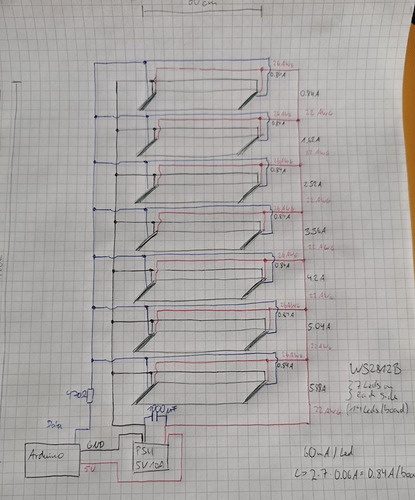 60cm
26 AWG
0.84A
0.84A
22 AWG
26 AWG
0.84A
1.62A
22 AWG
26 AWG
0.84A
2.52A
22 AWG
26 AWG
0.84A
3.36A
22 AWG
26 AWG
0.84A
4.2A
22 AWG
26 AWG
0.84A
5.04A
22 AWG
26 AWG
0.84A
5.88A
22 AWG
WS2812B
7 Leds on
each side
(14 Leds/board)
470Ω
1000µF
Data
Arduino
GND
5V
PSU
5V 10A
60mA/Led
↳ 2·7·0.06A = 0.84A/boa